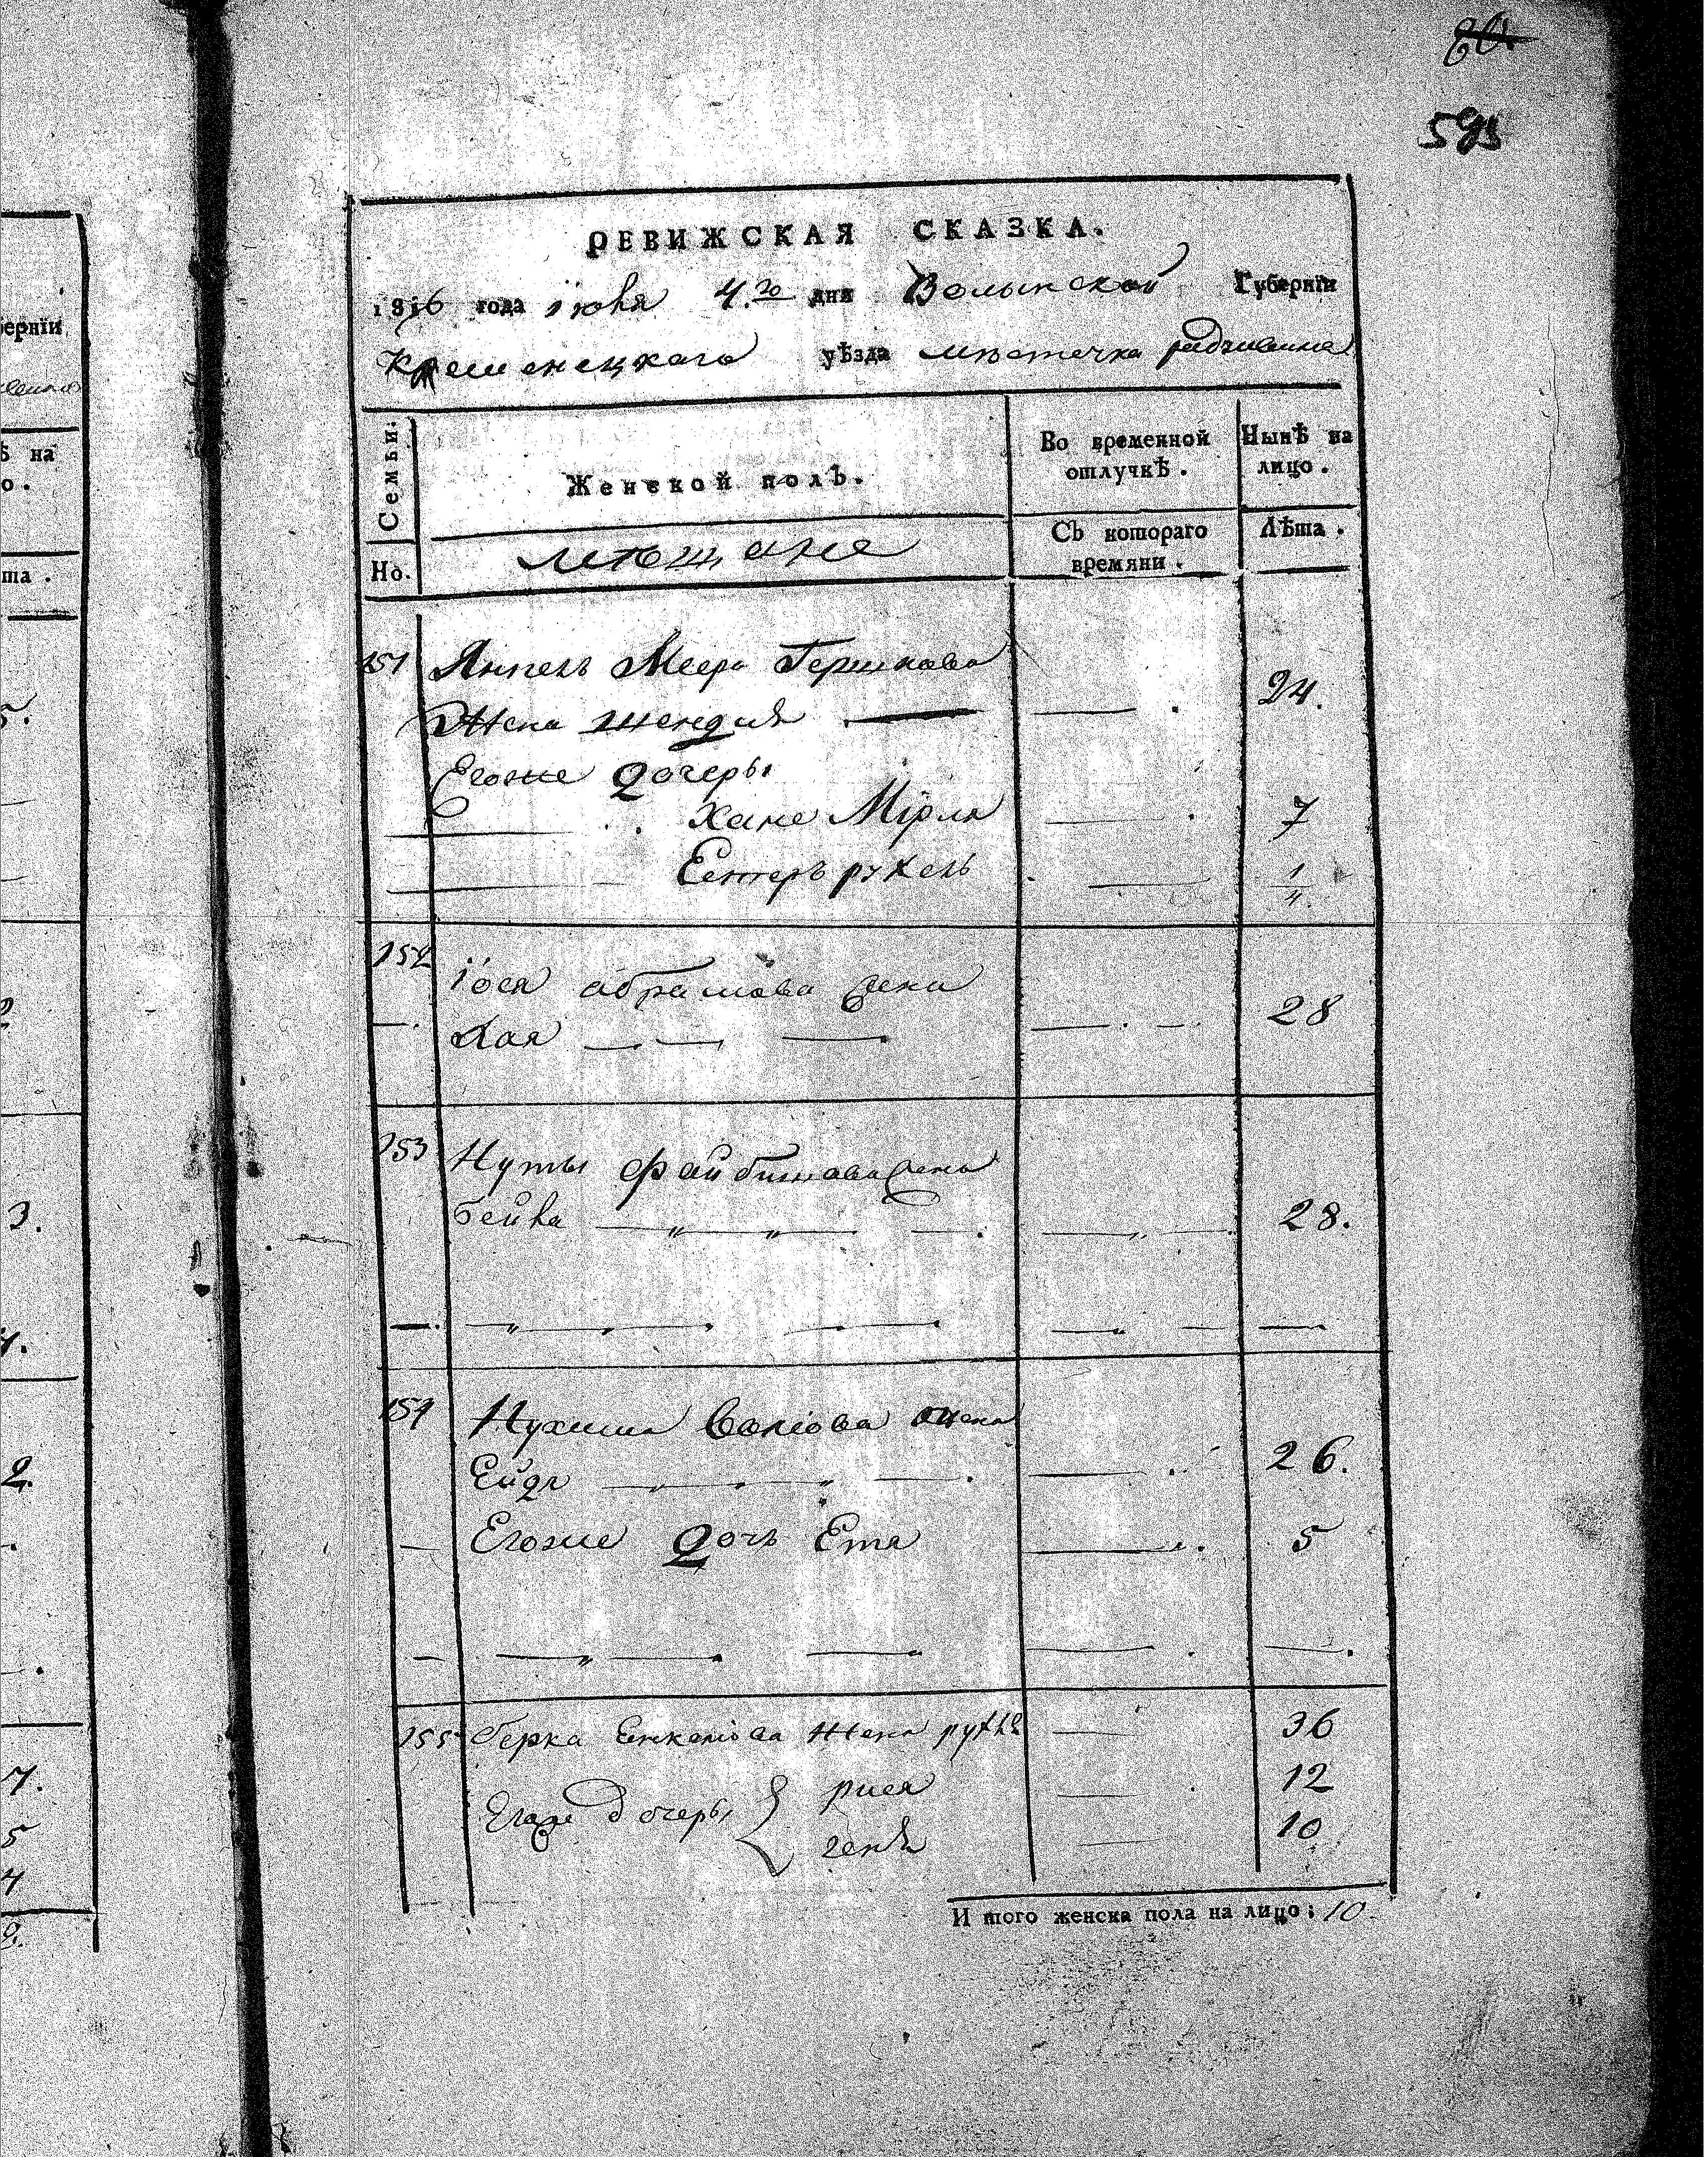 593
РЕВИЖСКАЯ СКАЗКА.
1816 года іюня 4.го дня Волынской Губернїи
Кременецкаго уѣзда мѣстечка радзивила
Семьи.
Женской полъ.
Во временной отлучкѣ.
Нынѣ на лицо.
Но.
мѣщане
Съ котораго времяни.
Лѣта.
151 Янкель Меера Гершкова
Жена шендля 24.
Егоже Дочеры
Хане Мірля 7
Естеръ рухель 1/4.
152 іося абрамова жена
хая 28
153 Нуты Файбишова жена
Бейла 28.
154 Нухима Волкова жена
Ейдля 26.
Егоже Дочь Етя 5
155 Берка Енкелїова Жена рухля 36
Егоже дочеры { рися 12
генѣ 10
И того женска пола на лицо: 10
ернїи
ѣ на
о.
та.
5.
3.
4.
2.
7.
5
4